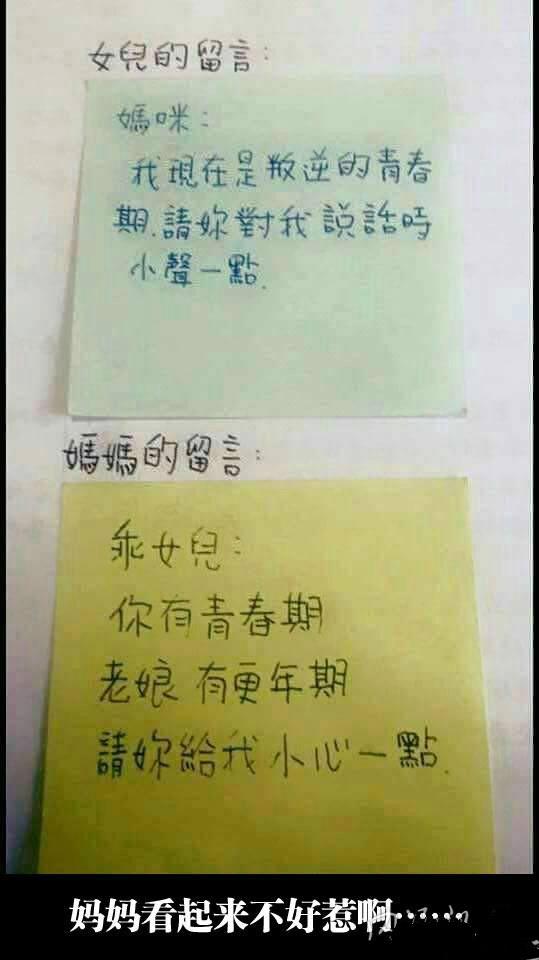 女兒的留言：
媽咪：
我現在是叛逆的青春
期.請妳對我說話時
小聲一點.
媽媽的留言：
乖女兒：
你有青春期
老娘 有更年期
請妳給我小心一點.
妈妈看起来不好惹啊……